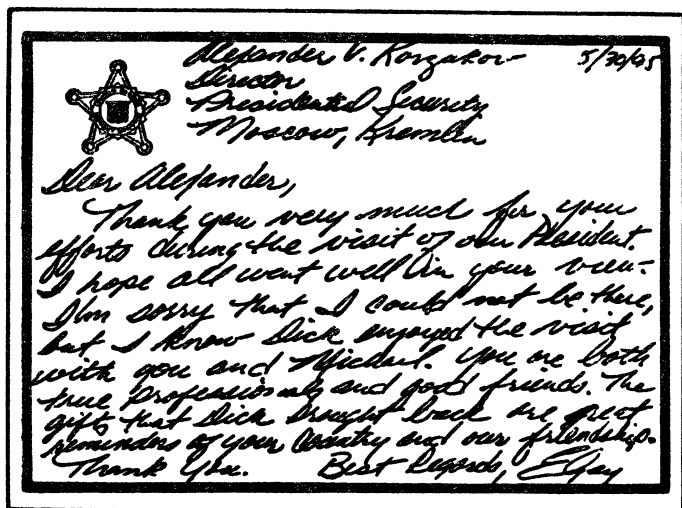 Alexander V. Korzakov 5/30/95
Director
Presidential Security
Moscow, Kremlin
Dear Alexander,
Thank you very much for your
efforts during the visit of our President.
I hope all went well in your view.
I'm sorry that I could not be there,
but I know Dick enjoyed the visit
with you and Michael. You are both
true professionals and good friends. The
gifts that Dick brought back are great
reminders of your country and our friendship.
Thank You. Best Regards,